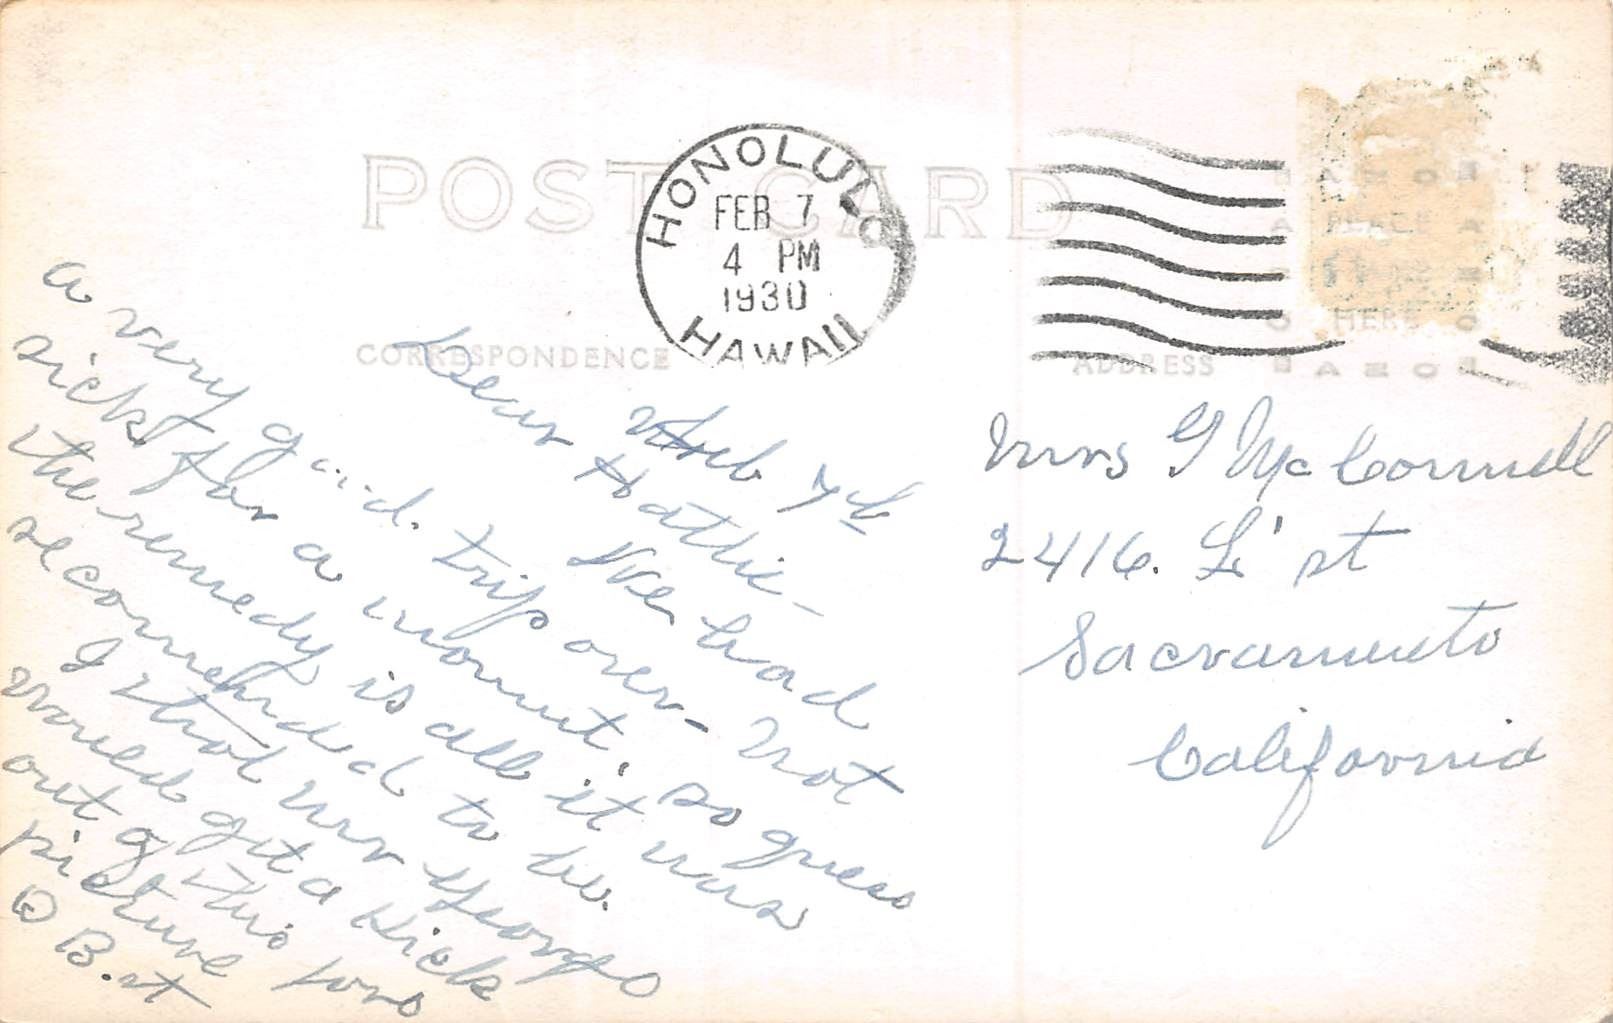 POST CARD
HONOLULU
FEB 7
4 PM
1930
HAWAII
CORRESPONDENCE
ADDRESS
PLACE
STAMP
HERE
Feb 7th
Dear Hattie -
We had
a very good trip over - Not
sick for a moment so guess
the remedy is all it was
recommended to be.
I that Mr George
would get a kick
out of this
picture
Mrs G McConnell
2416. L' st
Sacramento
California